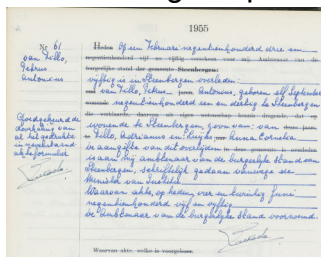 1955
Nr 61
van Tillo,
Petrus
Antonius
Goedgekeurd de
doorhaling van
al het gedrukte
in nevenstaand
akteformulier
Heden Op een Februari negentienhonderd drie en
negentienhonderd vijf en vijftig verscheen voor mij Ambtenaar van de
burgerlijke stand der gemeente Steenbergen:
vijftig is in Steenbergen overleden:
van Tillo, Petrus Antonius, geboren elf September
negentienhonderd een en dertig te Steenbergen
wonende te Steenbergen, zoon van: van
Tillo, Adrianus en: Anna Cornelia
de aangifte van dit overlijden is
is aan mij ambtenaar van de burgerlijke stand van
Steenbergen, schriftelijk gedaan vanwege de
Minister van Justitie.
Waarvan akte, op heden, vier en twintig Juni
negentienhonderd vijf en vijftig
De Ambtenaar van de burgerlijke stand voornoemd.
Waarvan akte, welke is voorgelezen.